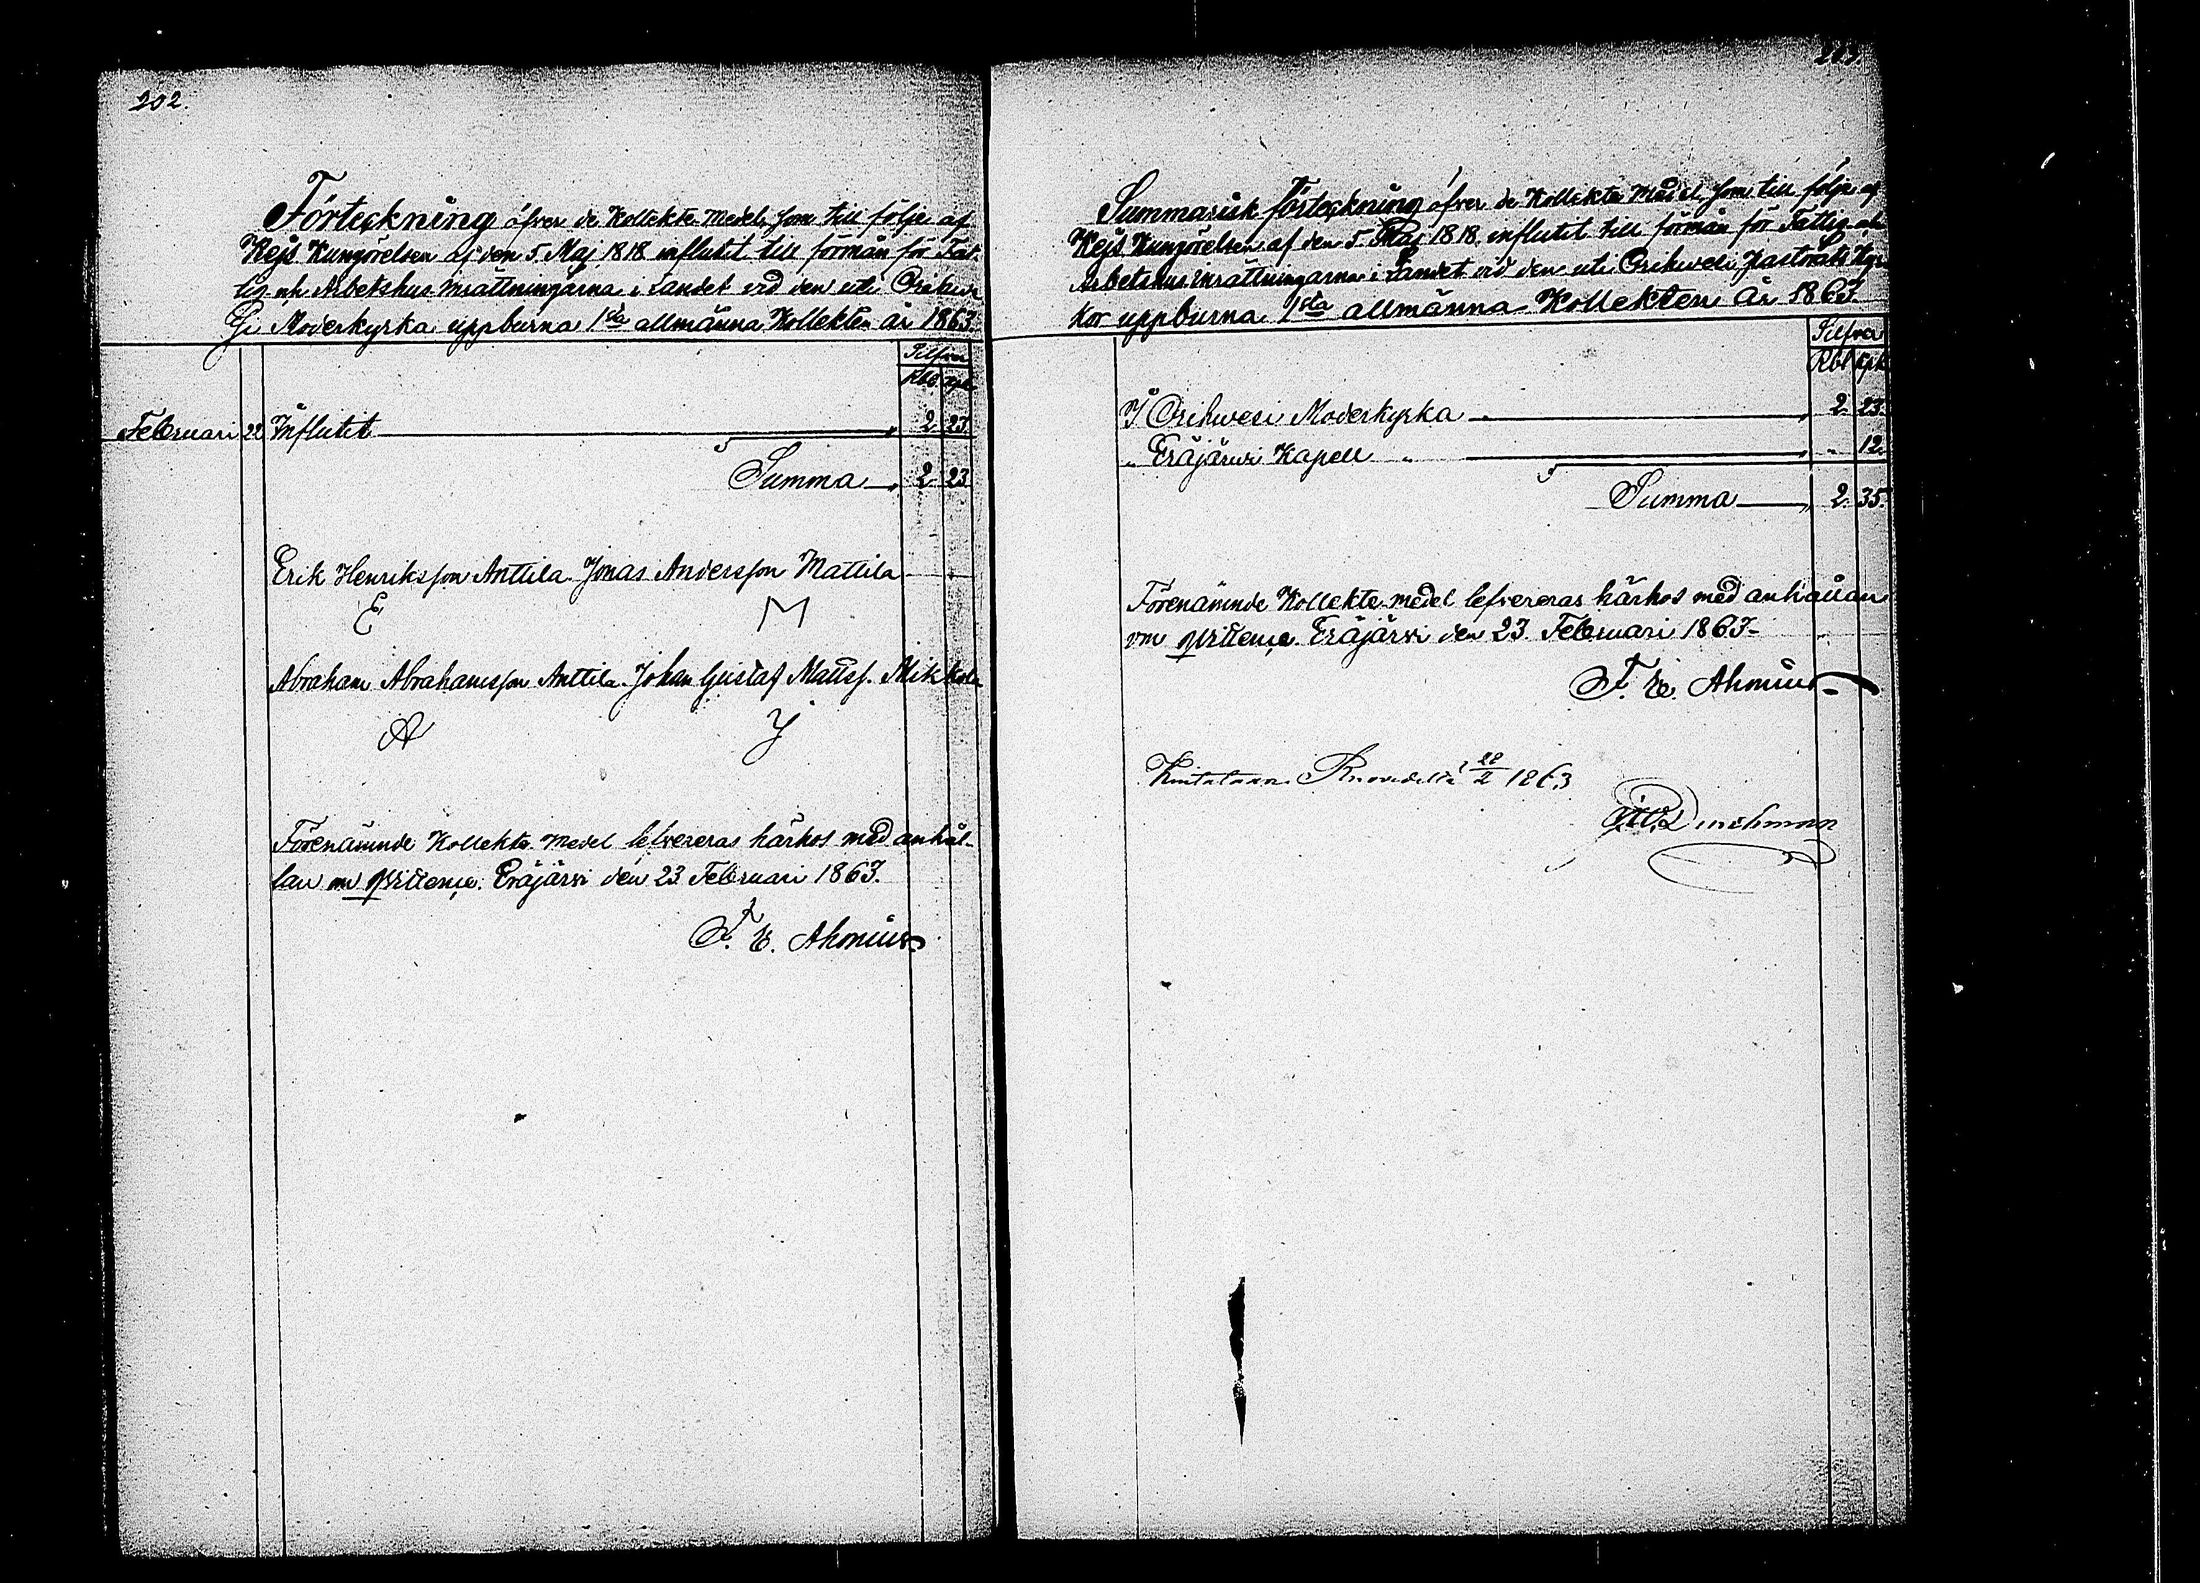 202.
Förteckning öfver de Kollekte Medel, som till följe af
Kejs Kungörelsen af den 5. Maj 1818 influtit till förmån för Fat-
tig och Arbetshus inrättningarna i Landet vid den uti Orihwe
si Moderkyrka uppburna 1sta allmänna Kollekten år 1863.
Silfver
Rbl kpk
Februari 22 Influtit 2 23.
Summa 2 23
Erik Henriksson Anttila Jonas Andersson Mattila
E M
Abraham Abrahamsson Anttila. Johan Gustaf Mattss. Mikkola
A J
Förenämnde Kollekte Medel lefvereras härhos med anhål-
lan om qvittence. Eräjärvi den 23 Februari 1863.
F. E. Ahonius
203.
Summarisk förteckning öfver de Kollekte Medel, som till följe af
Kejs Kungörelsen af den 5 Maj 1818 influtit till förmån för Fattig och
Arbetshus inrättningarna i Landet vid den uti Orihwesi Pastorats Kyr-
kor uppburna 1sta allmänna Kollekten År 1863
Silfver
Rbl kpk
I Orihwesi Moderkyrka 2. 23.
" Eräjärwi Kapell " " 12.
Summa 2. 35.
Förenämnde Kollekte medel lefvereras härhos med anhållan
om qvittence. Eräjärvi den 23 Februari 1863
F. E. Ahonius
1863